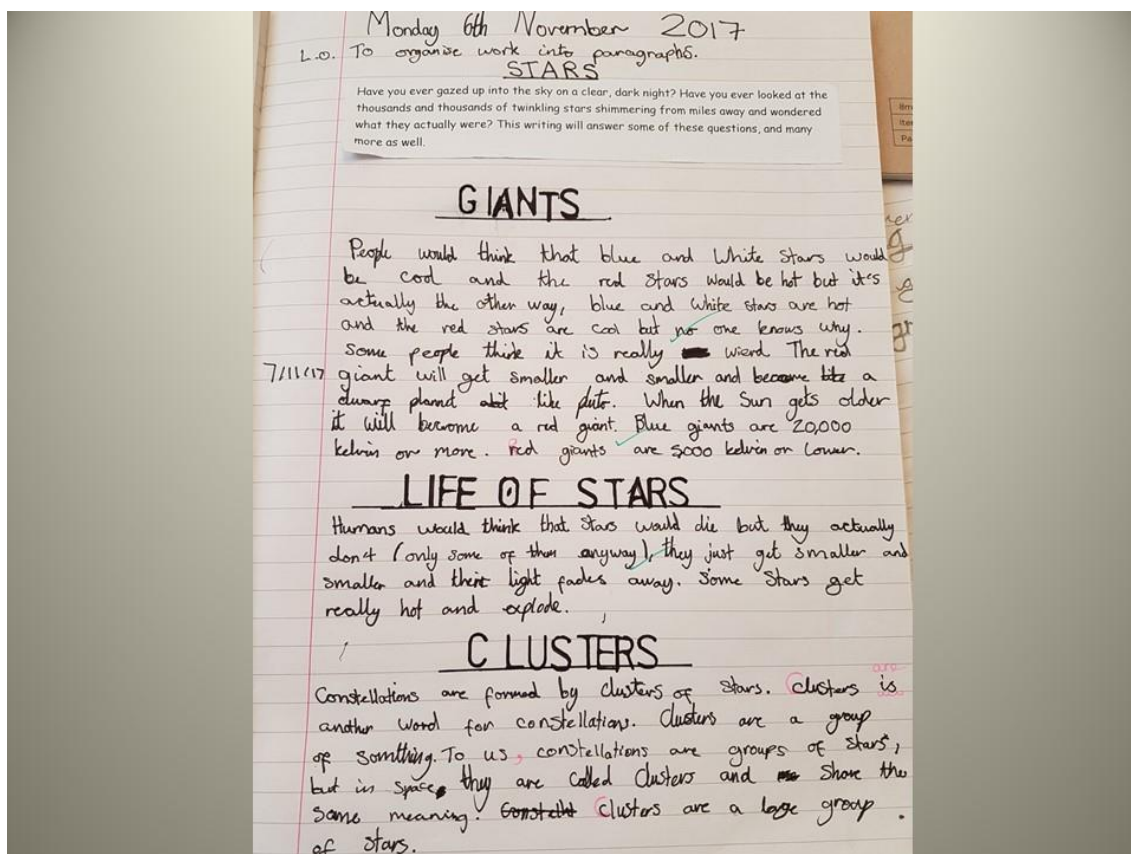 Monday 6th November 2017
L.O. To organise work into paragraphs.
STARS
Have you ever gazed up into the sky on a clear, dark night? Have you ever looked at the
thousands and thousands of twinkling stars shimmering from miles away and wondered
what they actually were? This writing will answer some of these questions, and many
more as well.
GIANTS
People would think that blue and White Stars would
be cool and the red stars would be hot but it's
actually the other way, blue and white stars are hot
and the red stars are cool but no one knows why.
Some people think it is really wierd. The red
7/11/17 giant will get smaller and smaller and become a
dwarf planet like pluto. When the Sun gets older
it will become a red giant. Blue giants are 20,000
kelvin or more. Red giants are 5000 kelvin or lower.
LIFE OF STARS
Humans would think that stars would die but they actually
don't (only some of them anyway), they just get smaller and
smaller and their light fades away. Some Stars get
really hot and explode.
CLUSTERS
are
Constellations are formed by clusters of stars. Clusters is
another word for constellations. Clusters are a group
of somthing. To us, constellations are groups of stars,
but in space, they are called clusters and share the
same meaning. Clusters are a large group
of stars.